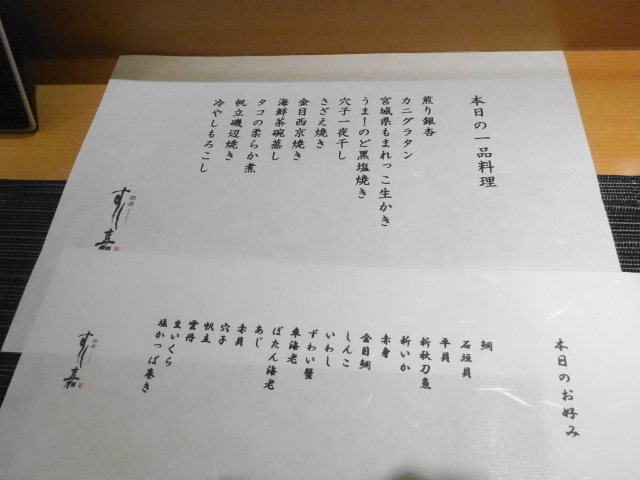 本日の一品料理
煎り銀杏
カニグラタン
宮城県もまれっこ生かき
うま！のど黒塩焼き
穴子一夜干し
さざえ焼き
金目西京焼き
海鮮茶碗蒸し
タコの柔らか煮
帆立磯辺焼き
冷やしもろこし
すし嘉
本日のお好み
鯛
石垣貝
平貝
新秋刀魚
新いか
赤身
金目鯛
しんこ
いわし
ずわい蟹
車海老
ぼたん海老
あじ
赤貝
穴子
帆立
雲丹
生いくら
塩かっぱ巻き
すし嘉